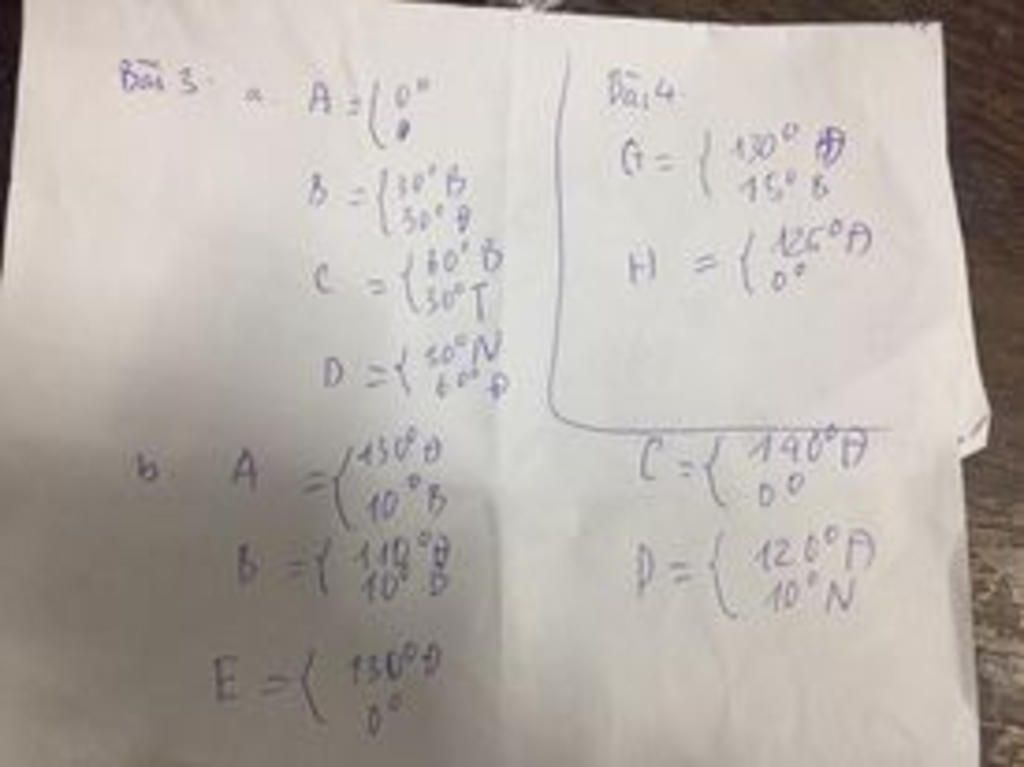 Bài 3. a A = { 0°
0
B = { 30° B
30° Đ
C = { 60° B
30° T
D = { 30° N
60° Đ
b A = { 130° Đ
10° B
B = { 110° Đ
10° B
E = { 130° Đ
0°
Bài 4.
G = { 130° Đ
15° B
H = { 125° Đ
0°
C = { 140° Đ
0°
D = { 120° Đ
10° N